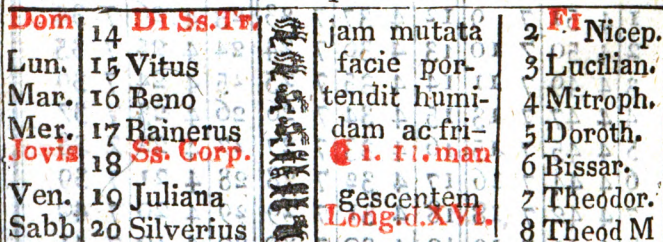 Dom 14 Di Ss. Tr. jam mutata 2 Fi Nicep.
Lun. 15 Vitus facie por- 3 Lucilian.
Mar. 16 Beno tendit humi- 4 Mitroph.
Mer. 17 Rainerus dam ac fri- 5 Doroth.
Jovis 18 Ss. Corp. 1. 11. man 6 Bissar.
Ven. 19 Juliana gescentem 7 Theodor.
Sabb 20 Silverius Long. d. XVI. 8 Theod M